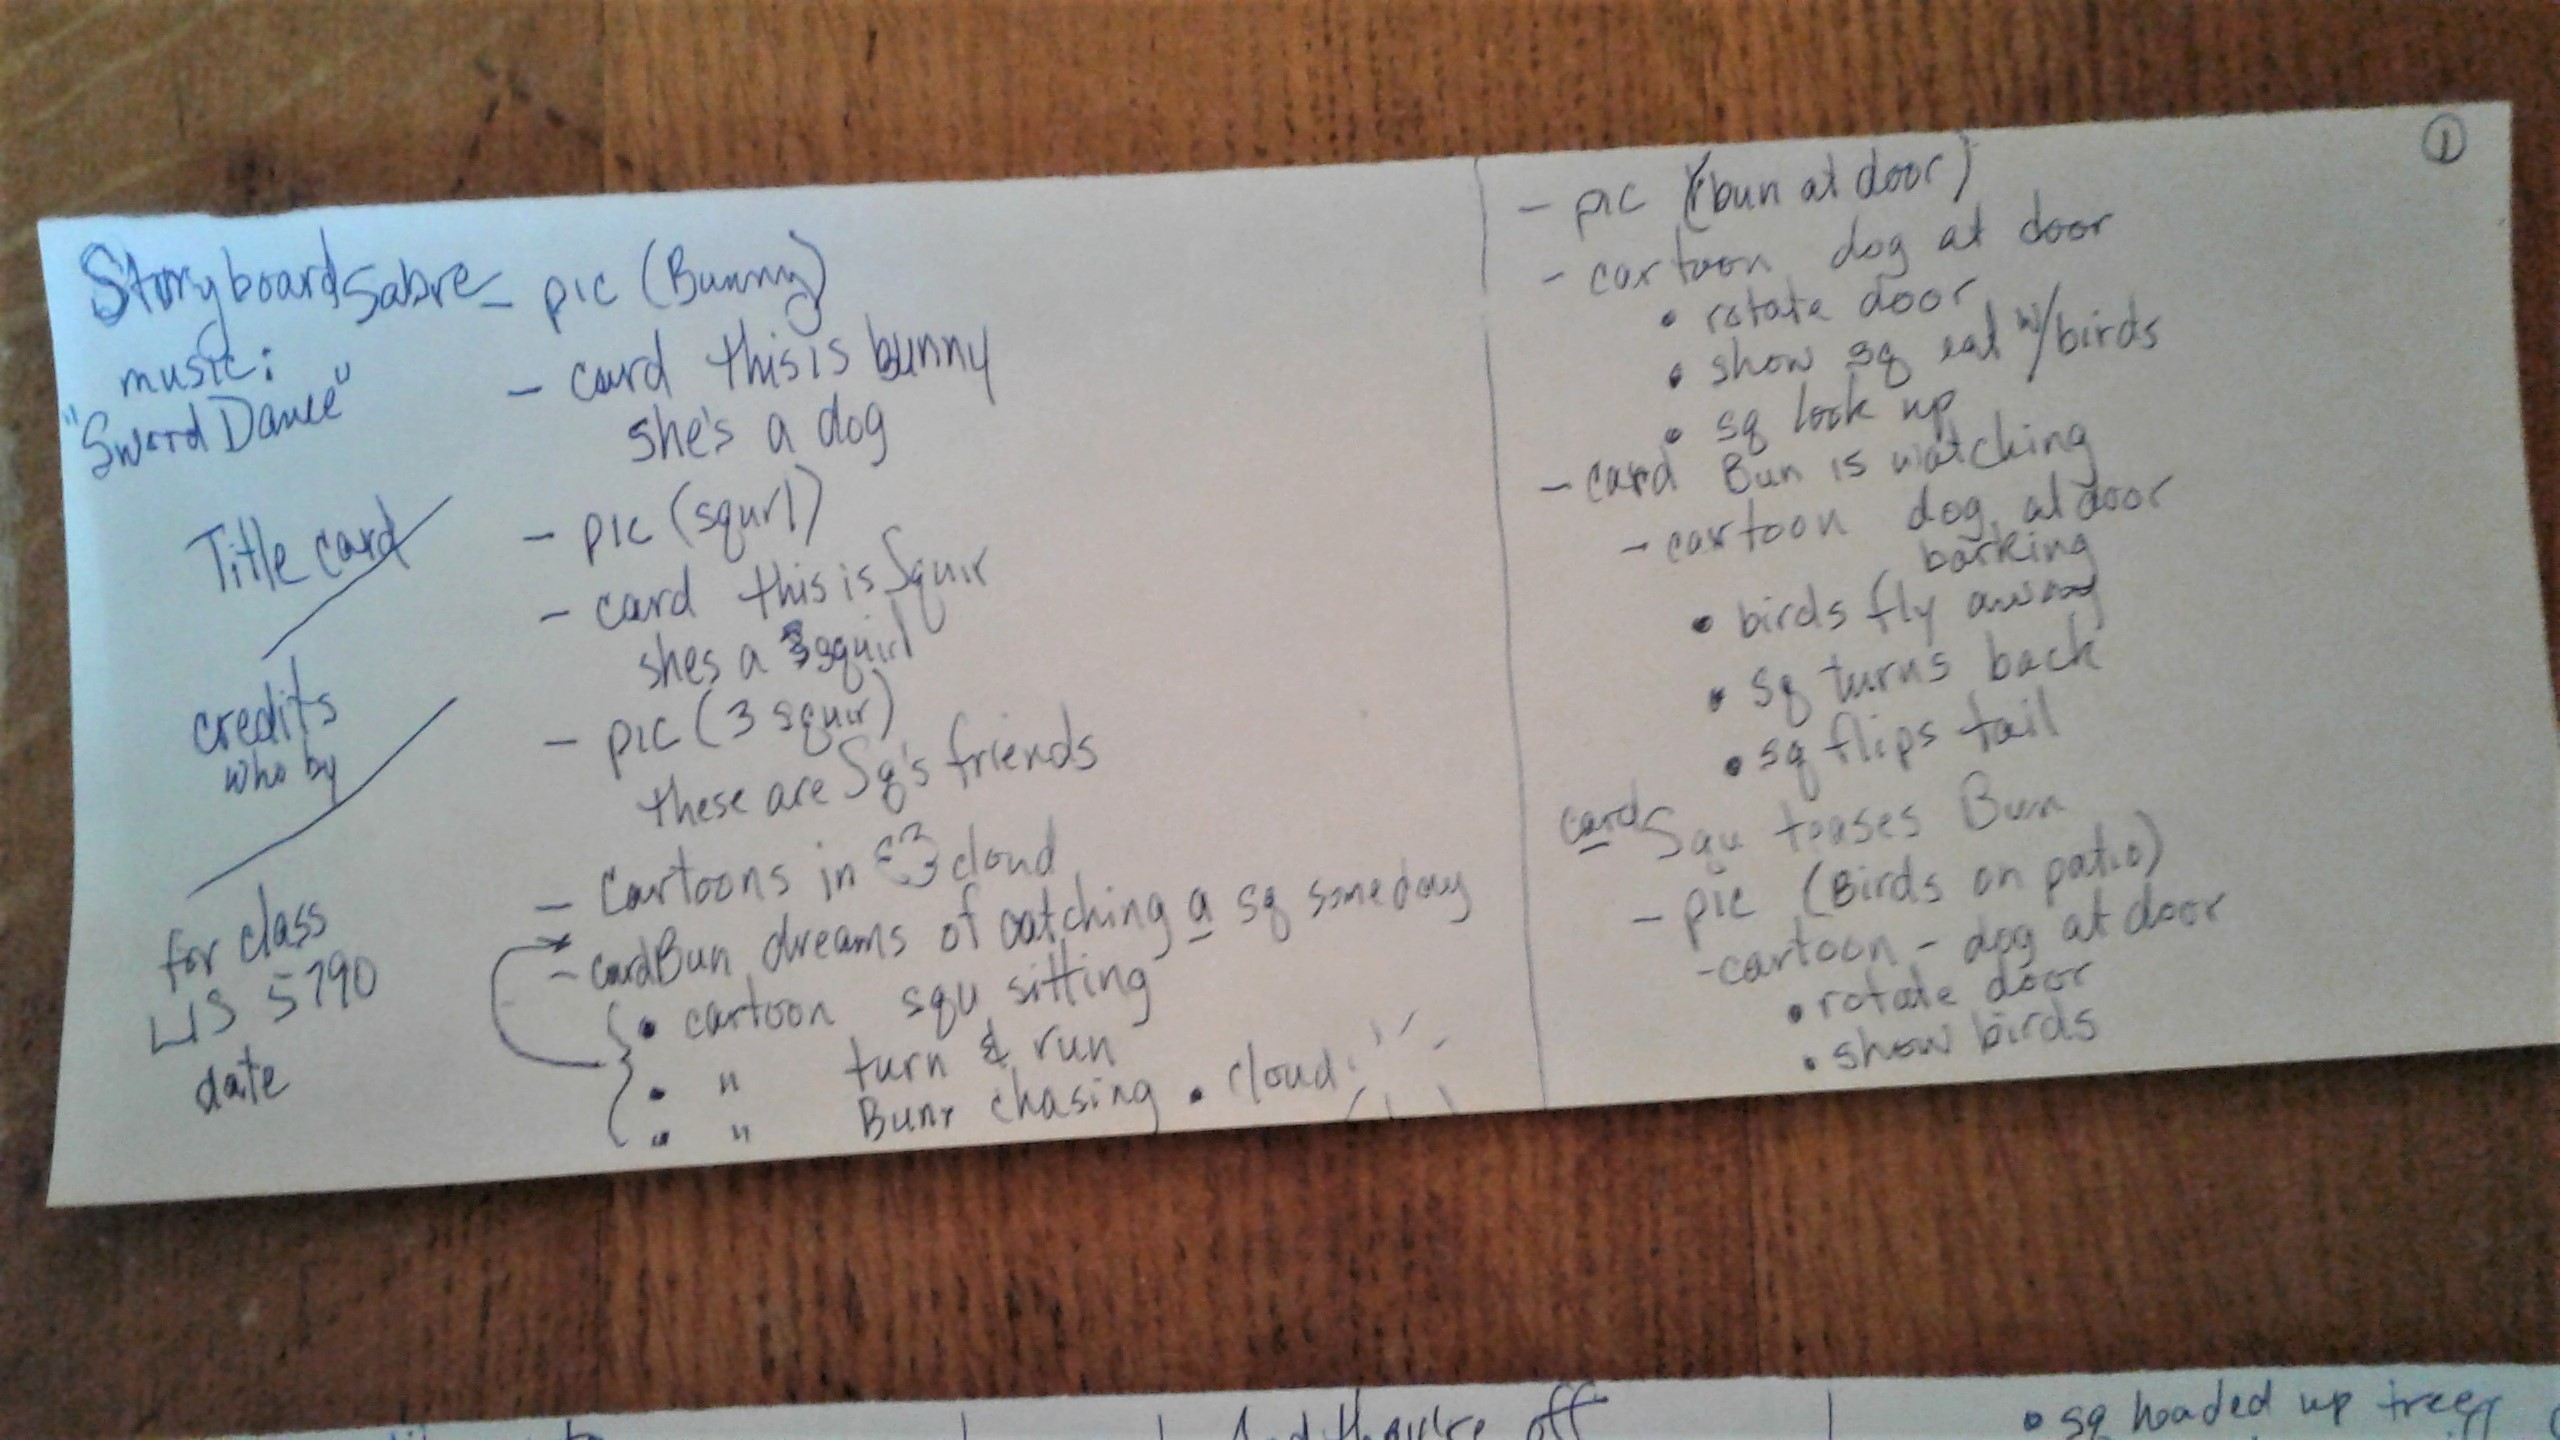 Storyboard Sabre
music:
"Sword Dance"
Title card
credits
who by
for class
LIS 5790
date
- pic (Bunny)
- card this is bunny
she's a dog
- pic (squrl)
- card this is Squir
shes a squirl
- pic (3 squir)
these are Sq's friends
- Cartoons in cloud
- card Bun dreams of catching a sq someday
• cartoon squ sitting
• " turn & run
• " Bunr chasing • cloud
①
- pic (bun at door)
- cartoon dog at door
• rotate door
• show sq eat w/birds
• sq look up
- card Bun is watching
- cartoon dog at door
barking
• birds fly away
• sq turns back
• sq flips tail
card Squ teases Bun
- pic (Birds on patio)
- cartoon - dog at door
• rotate door
• show birds
And they're off
• sq headed up tree